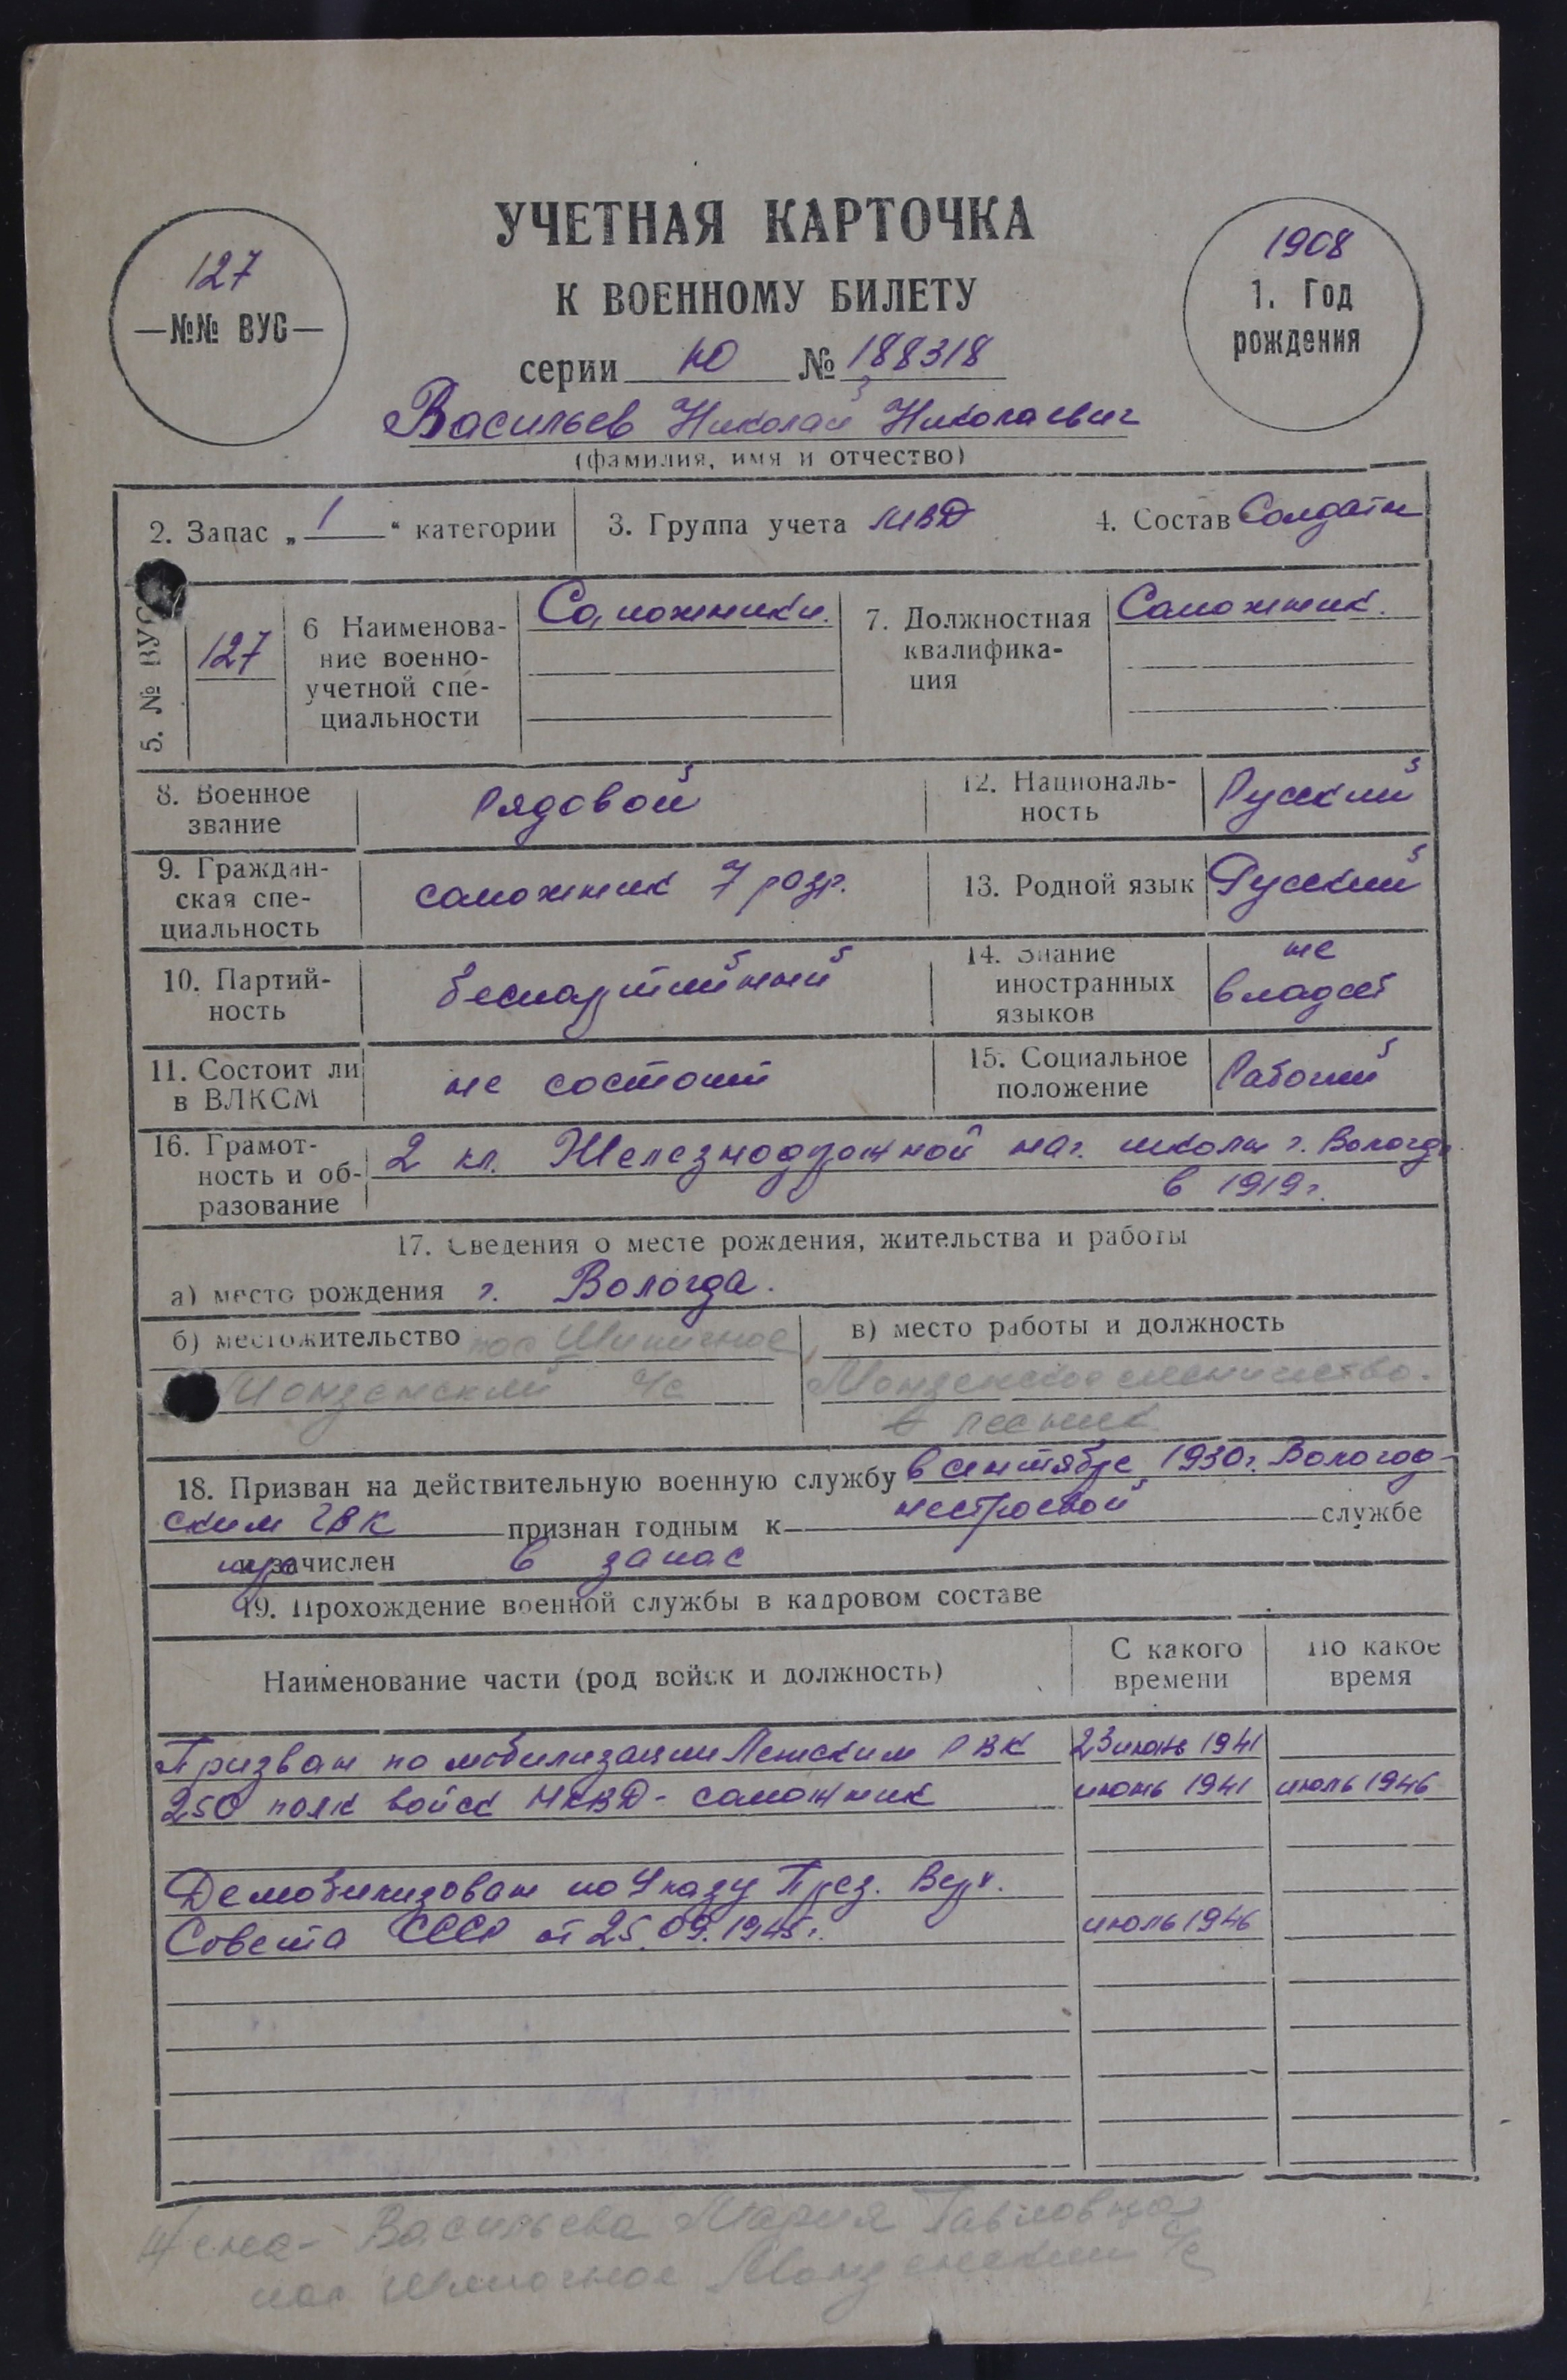 УЧЕТНАЯ КАРТОЧКА
К ВОЕННОМУ БИЛЕТУ
127
—№№ ВУС—
1908
1. Год
рождения
серии Ю № 188318
Васильев Николай Николаевич
(фамилия, имя и отчество)
2. Запас „ 1 “ категории
3. Группа учета МВД
4. Состав Солдаты
5. № ВУС
127
6 Наименова-
ние военно-
учетной спе-
циальности
Сапожники.
7. Должностная
квалифика-
ция
Сапожник.
8. Военное
звание
Рядовой
12. Националь-
ность
Русский
9. Граждан-
ская спе-
циальность
сапожник 7 разр.
13. Родной язык Русский
10. Партий-
ность
беспартийный
14. Знание
иностранных
языков
не
владеет
11. Состоит ли
в ВЛКСМ
не состоит
15. Социальное
положение
Рабочий
16. Грамот-
ность и об-
разование
2 кл. Железнодрожной нач. школы г. Вологды
в 1919г.
17. Сведения о месте рождения, жительства и работы
а) место рождения г. Вологда.
б) местожительство пос
с/с
в) место работы и должность
лесник
18. Призван на действительную военную службу в сентябре 1930г. Вологод-
ским ГВК признан годным к нестроевой службе
и зачислен в запас
19. Прохождение военной службы в кадровом составе
Наименование части (род войск и должность)
С какого
времени
По какое
время
Призван по мобилизации Лежским РВК 23 июнь 1941
250 полк войск НКВД - сапожник июнь 1941 июль 1946
Демобилизован по Указу През. Верх.
Совета СССР от 25.09.1945г. июль 1946
Жена - Васильева Мария Павловна
пос с/с